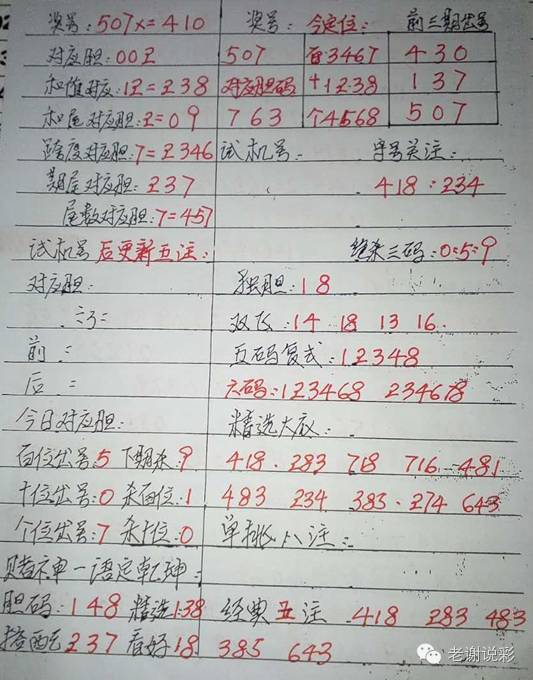 奖号:507X=410 奖号: 今定位: 前三期出号
对应胆:002 507 百3467 430
和值对应:12=238 对应胆码 十1238 137
和尾对应胆:2=09 763 个4568 507
跨度对应胆:7=2346 试机号: 字号关注:
期尾对应胆:237 418:234
尾数对应胆:7=457
试机号后更新五注: 绝杀三码:0:5:9
对应胆: 独胆:18
双飞:14 18 13 16
前: 五码复式:12348
后: 六码:123468 234678
今日对应胆: 精选大底:
百位出号:5 下期杀:9 418. 283 718 716 481
十位出号:0 杀百位:1 483 234 383. 274 643
个位出号:7 杀十位:0 单挑八注:
赌神一语定乾坤:
胆码:148 精选138 经典五注 418 283 483
搭配237 看好18 385 643
老谢说彩